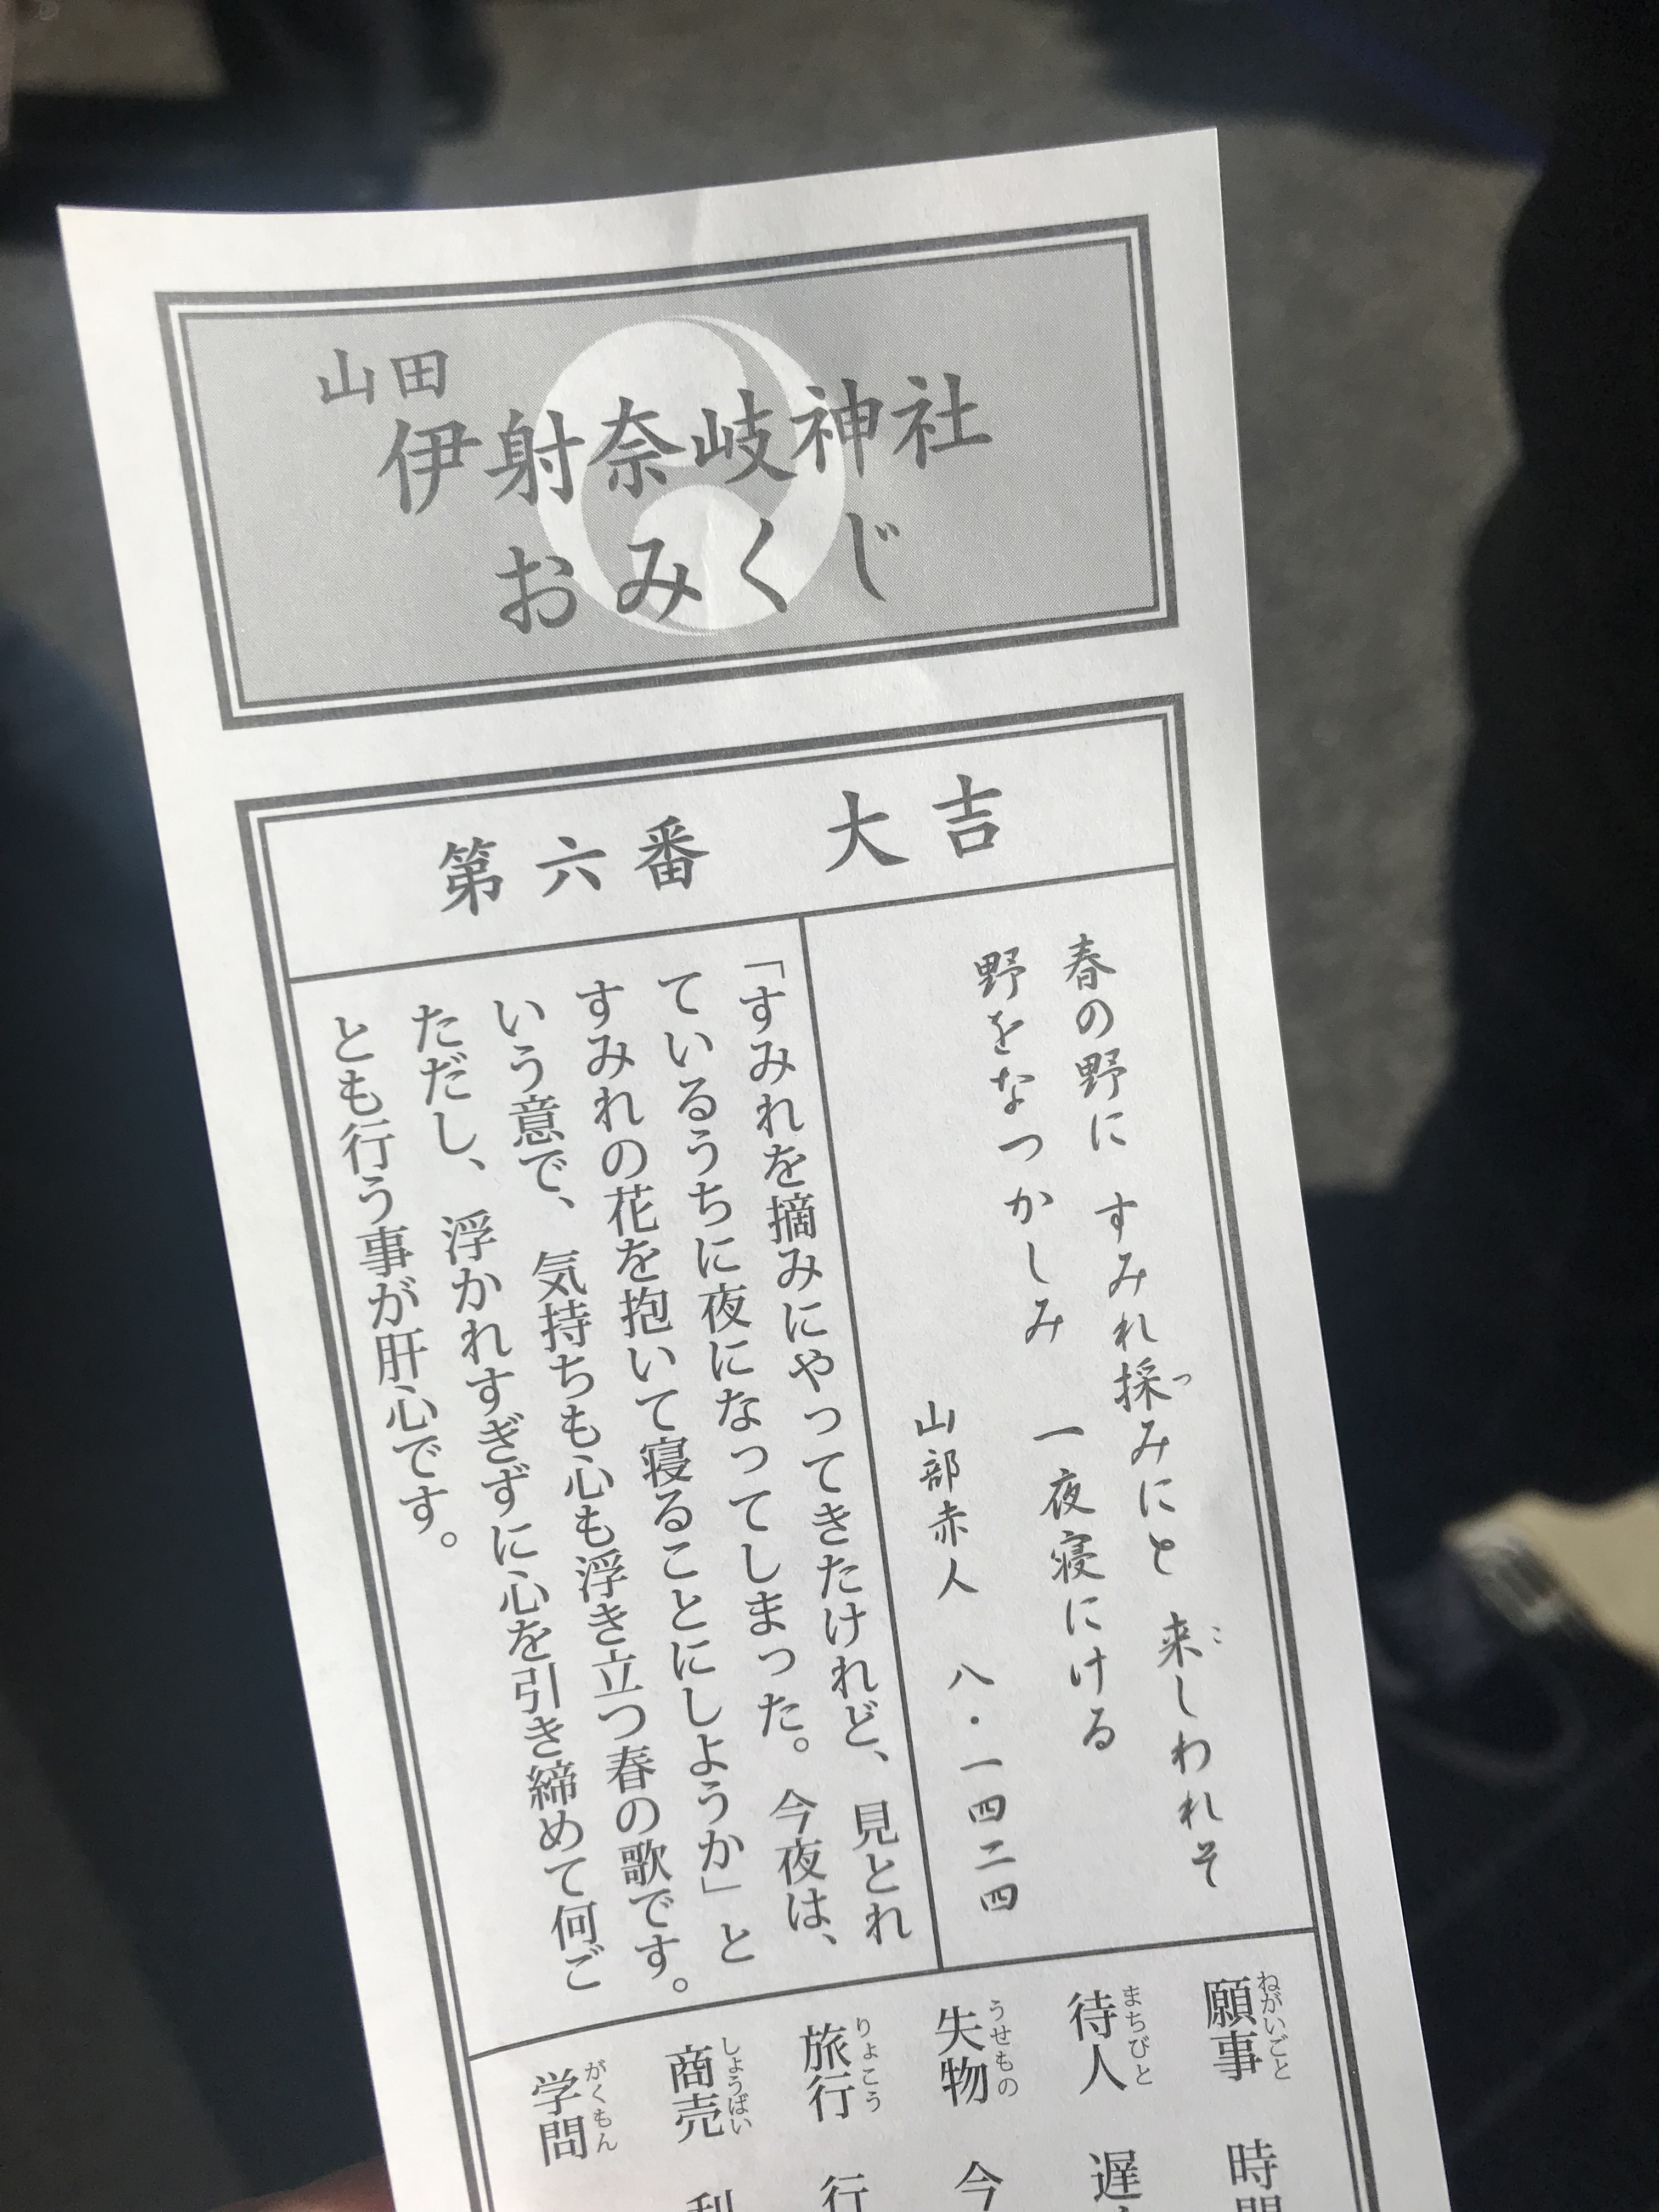 山田
伊射奈岐神社
おみくじ
第六番　大吉
春の野に　すみれ採みにと　来しわれそ
つ
こ
野をなつかしみ　一夜寝にける
山部赤人　八・一四二四
「すみれを摘みにやってきたけれど、見とれ
ているうちに夜になってしまった。今夜は、
すみれの花を抱いて寝ることにしようか」と
いう意で、気持ちも心も浮き立つ春の歌です。
ただし、浮かれすぎずに心を引き締めて何ご
とも行う事が肝心です。
願事　時間
ねがいごと
待人　遅
まちびと
失物　今
うせもの
旅行　行
りょこう
商売　利
しょうばい
学問
がくもん